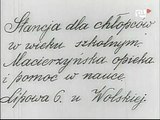 Stancja dla chłopców
w wieku szkolnym.
Macierzyńska opieka
i pomoc w nauce.
Lipowa 6. u Wolskiej